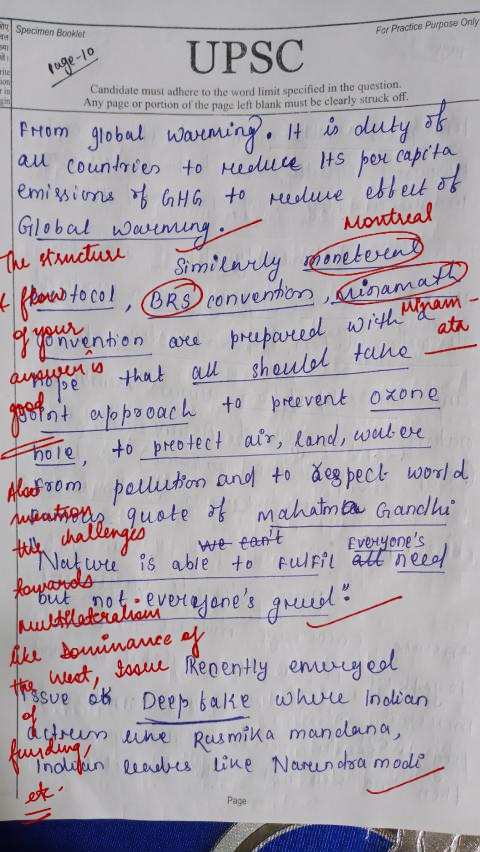 Specimen Booklet
For Practice Purpose Only
Page-10
UPSC
Candidate must adhere to the word limit specified in the question.
Any page or portion of the page left blank must be clearly struck off.
From global warming. It is duty of
all countries to reduce its per capita
emissions of GHG to reduce effect of
Global warming.
Montreal
Similarly moneteral
protocol, BRS convention, Minamath
Minamata
convention are prepared with a
hope that all should take
joint approach to prevent ozone
hole, to protect air, land, water
from pollution and to respect world
famous quote of Mahatma Gandhi
we can't Everyone's
"Nature is able to fulfil all need
but not everyone's greed".
Recently emerged
issue of Deepfake where Indian
actress like Rasmika mandana,
Indian leaders like Narendra modi
The structure
& flow
of your
answer is
good
Also
mention
the challenges
towards
multilateralism
like Dominance of
the west, Issue
of
funding,
etc.
Page